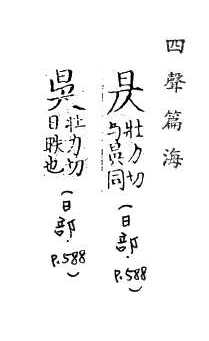 四聲篇海
壮力切
与昗同
(日部．P.588)
昗
壮力切
日昳也
(日部．P.588)